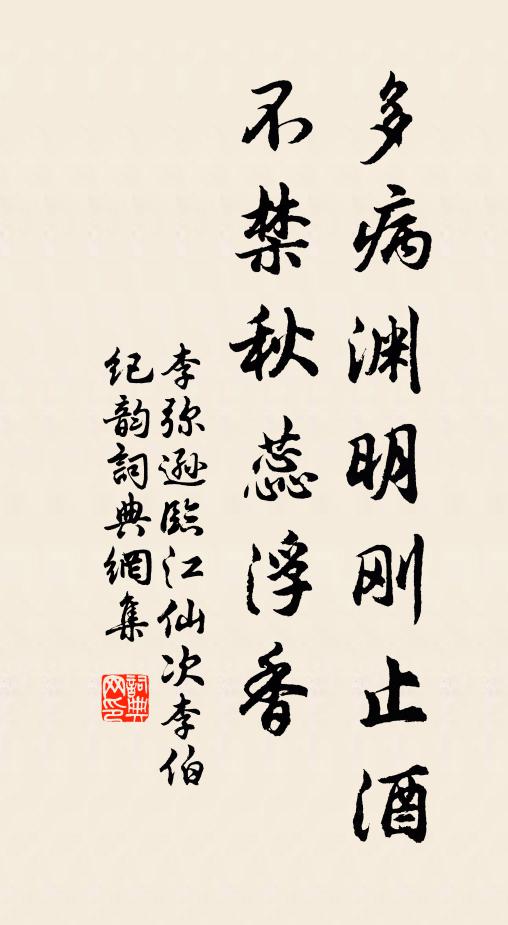 多病渊明刚止酒
不禁秋蕊浮香
李弥逊臨江仙次李伯
纪韵詞典網集
詞典
网印